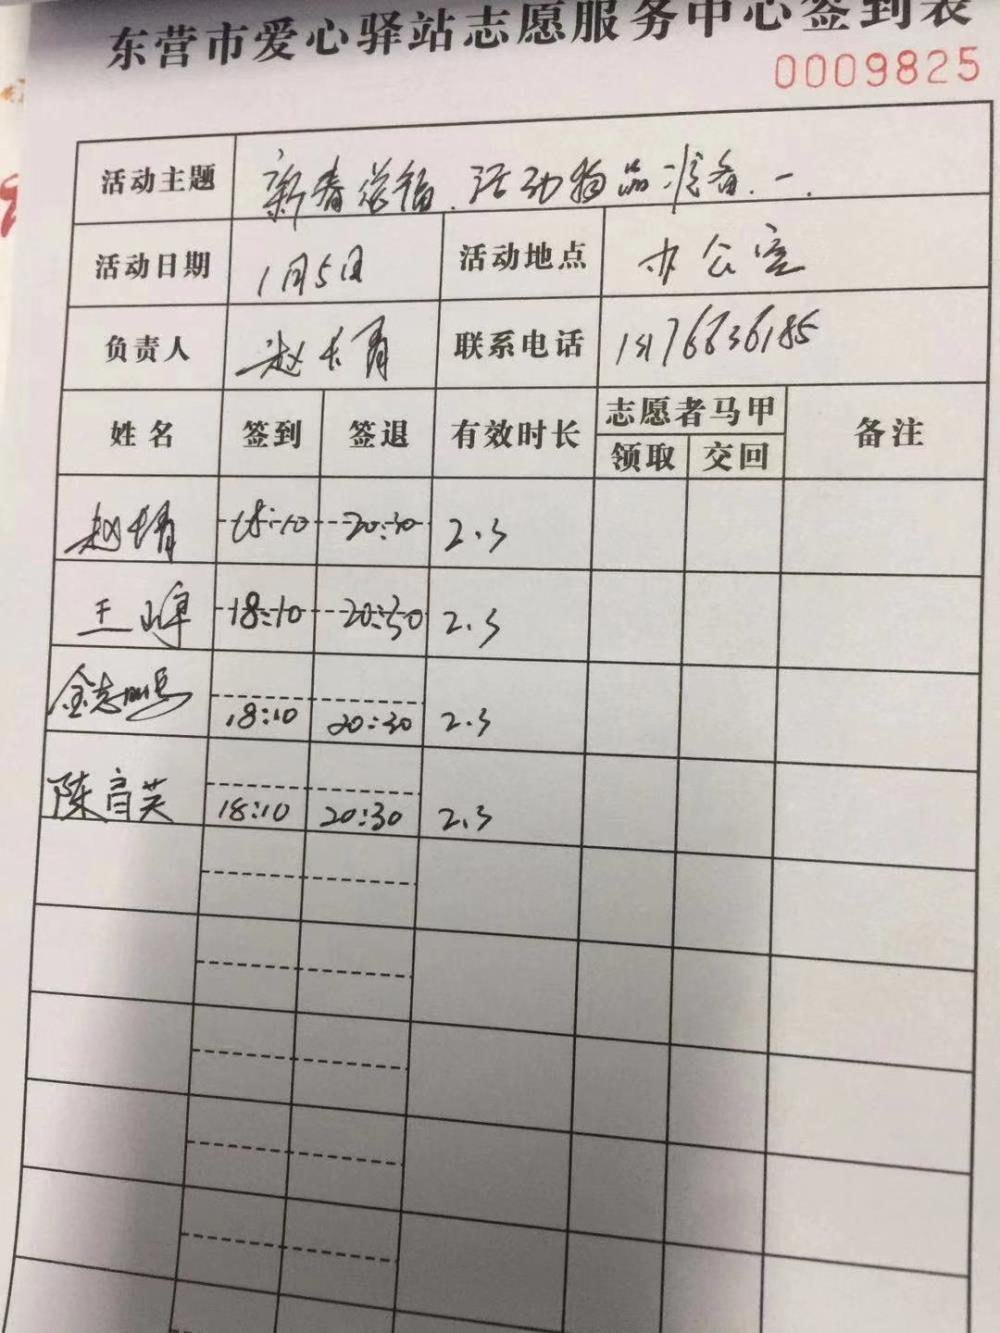 东营市爱心驿站志愿服务中心签到表
0009825
活动主题 新春送福、活动物品准备、一、
活动日期 1月5日 活动地点 办公室
负责人 赵长青 联系电话
姓名 签到 签退 有效时长 志愿者马甲 备注
领取 交回
赵长青 18:10 20:30 2.3
王 18:10 20:30 2.3
金志 18:10 20:30 2.3
陈育英 18:10 20:30 2.3